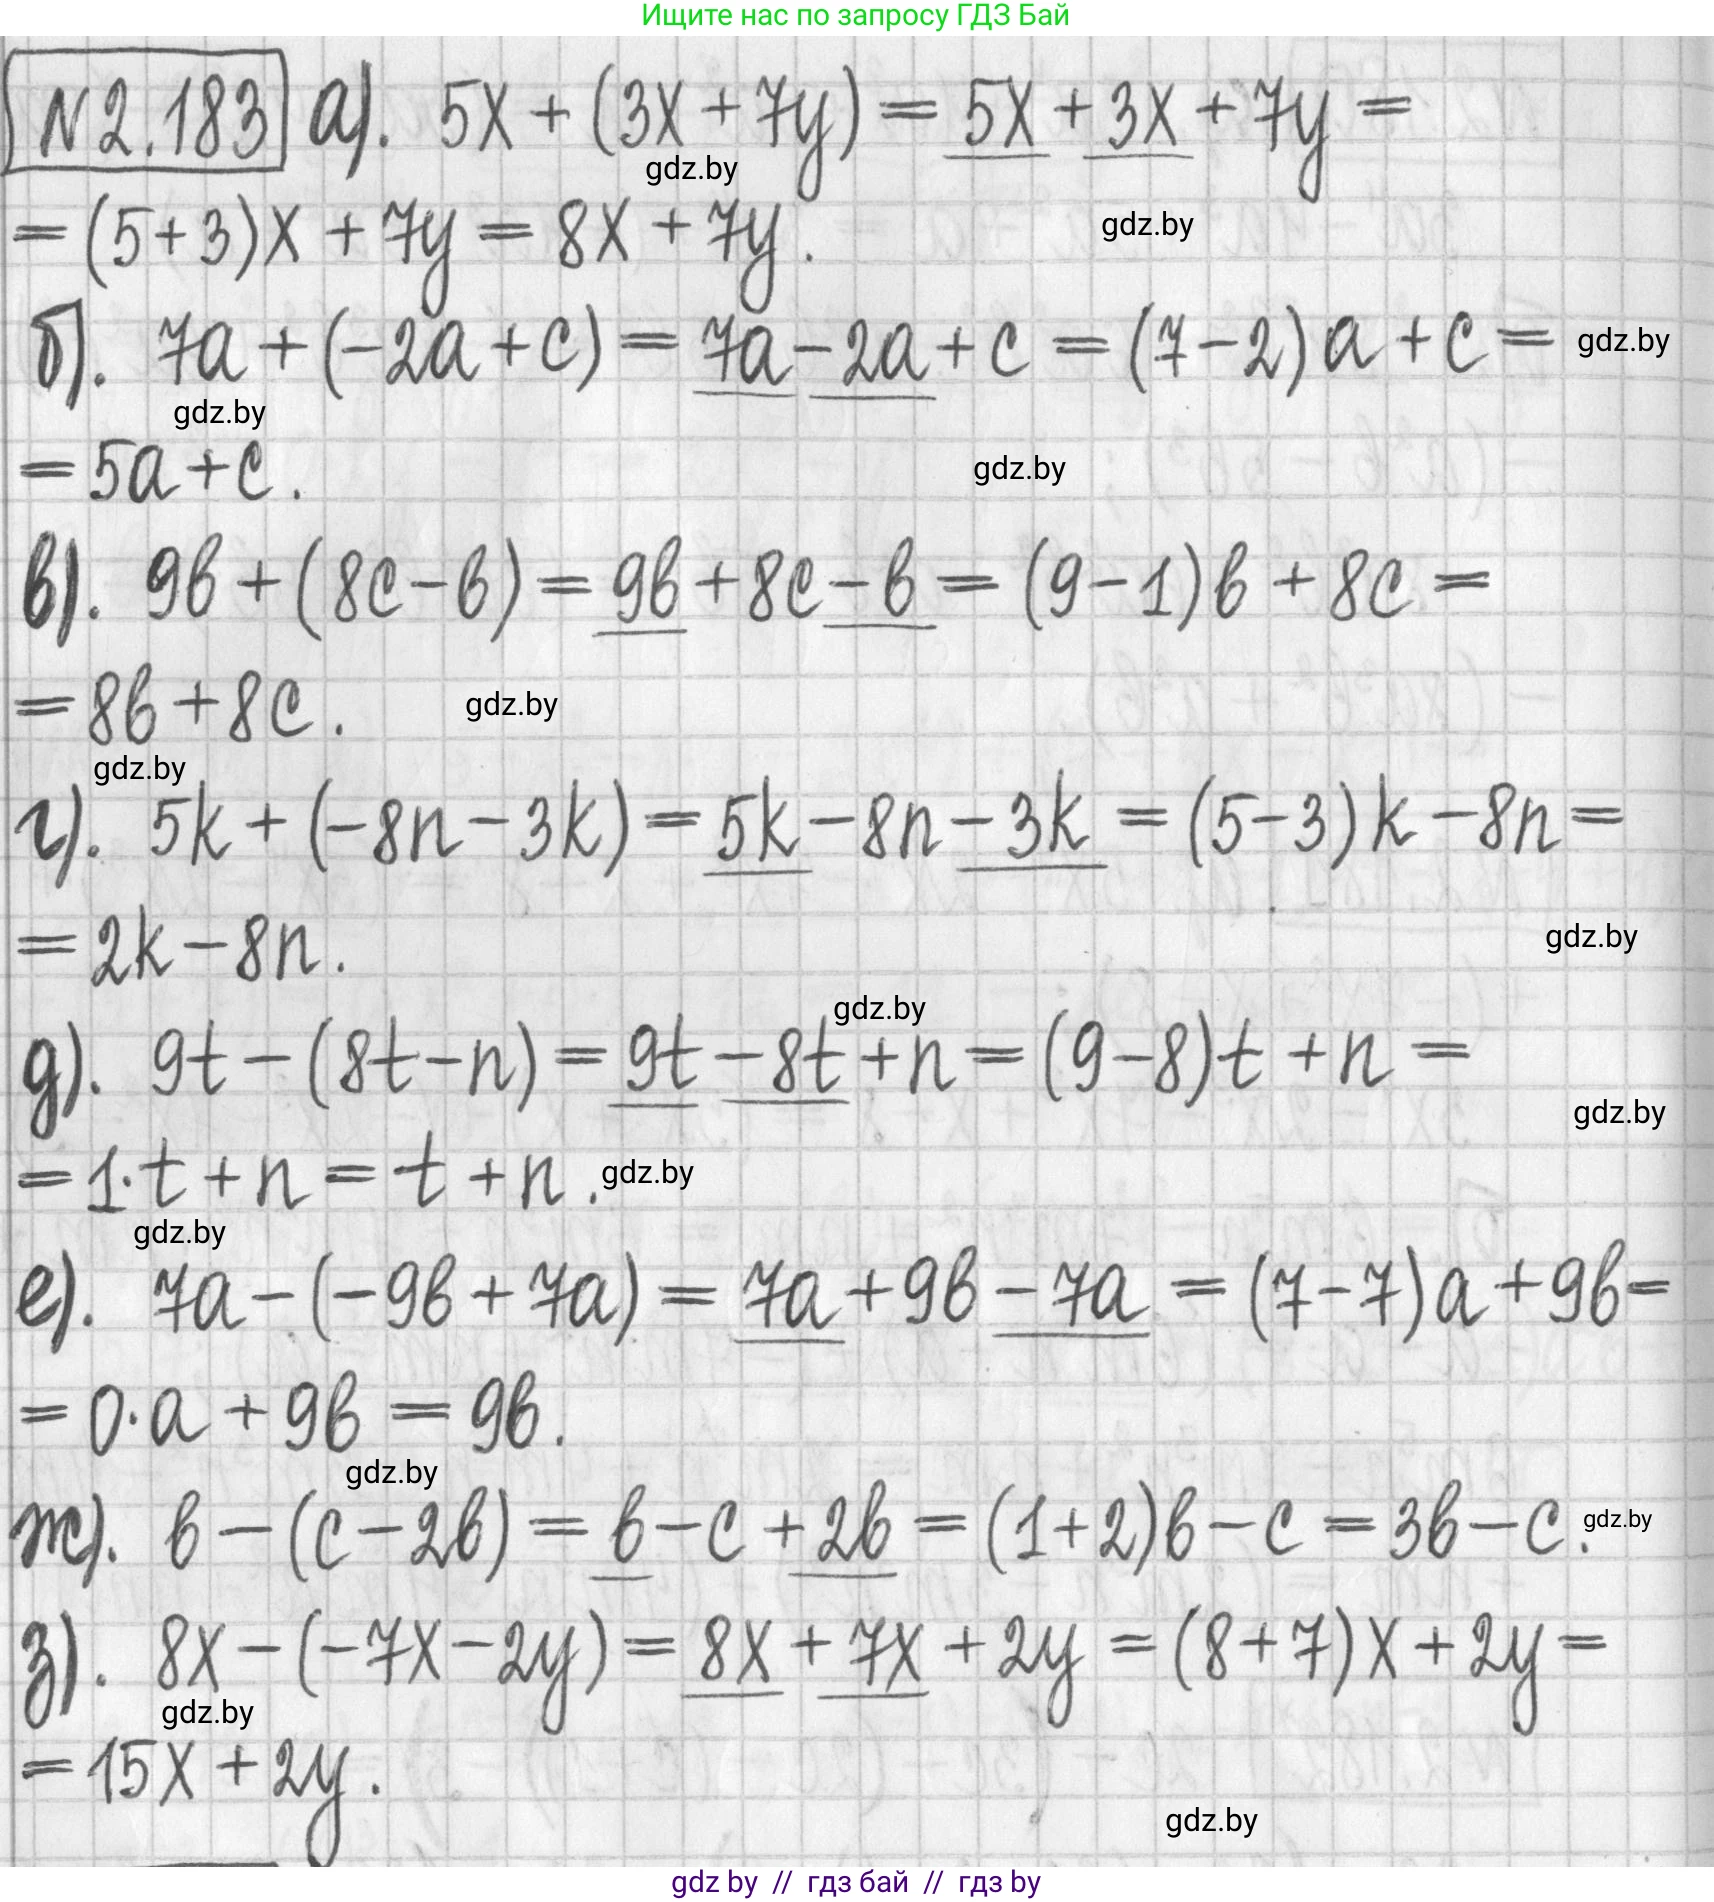 Ищите нас по запросу ГДЗ Бай
№2.183 а). 5x + (3x + 7y) = 5x + 3x + 7y =
gdz.by
= (5+3)x + 7y = 8x + 7y.
gdz.by
б). 7a + (-2a + c) = 7a - 2a + c = (7-2)a + c =
gdz.by
gdz.by
= 5a + c.
gdz.by
в). 9в + (8c - в) = 9в + 8c - в = (9-1)в + 8c =
= 8в + 8c.
gdz.by
gdz.by
г). 5k + (-8n - 3k) = 5k - 8n - 3k = (5-3)k - 8n =
= 2k - 8n.
gdz.by
gdz.by
д). 9t - (8t - n) = 9t - 8t + n = (9-8)t + n =
gdz.by
= 1·t + n = t + n.
gdz.by
gdz.by
е). 7a - (-9в + 7a) = 7a + 9в - 7a = (7-7)a + 9в =
= 0·a + 9в = 9в.
gdz.by
ж). в - (c - 2в) = в - c + 2в = (1+2)в - c = 3в - c.
gdz.by
з). 8x - (-7x - 2y) = 8x + 7x + 2y = (8+7)x + 2y =
gdz.by
= 15x + 2y.
gdz.by
gdz by // гдз бай // гдз by